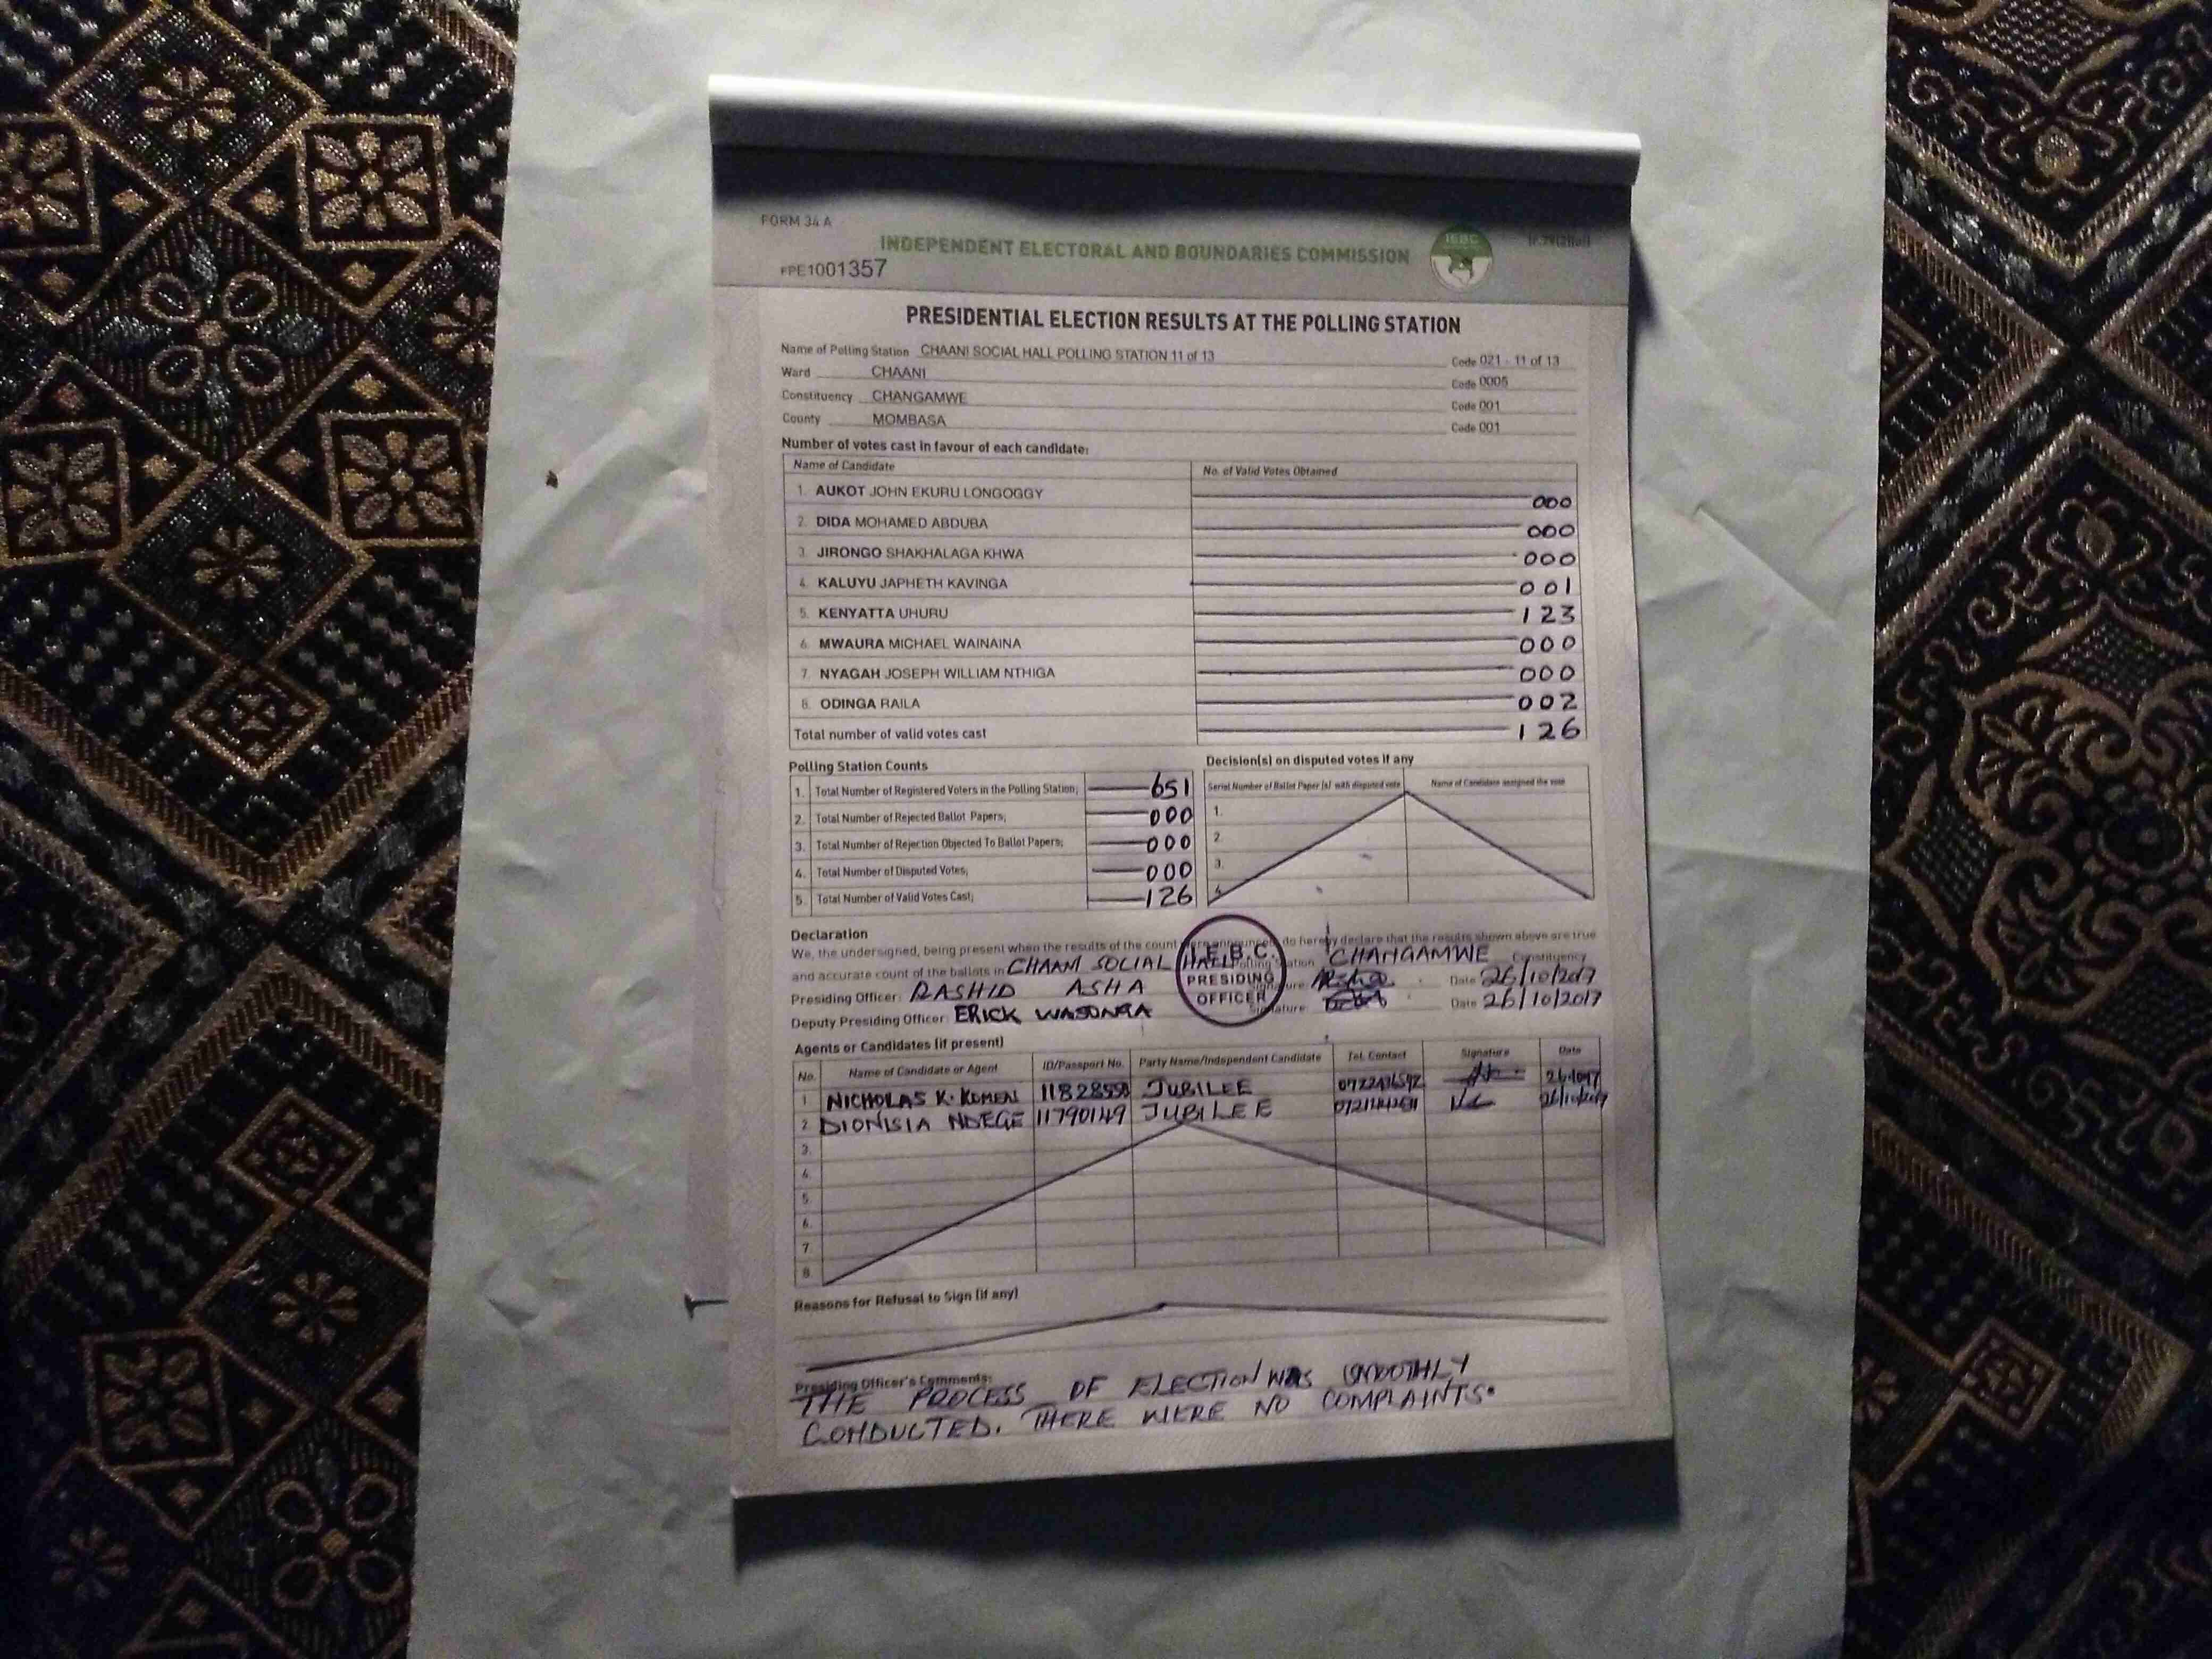 FORM 34 A
INDEPENDENT ELECTORAL AND BOUNDARIES COMMISSION
IEBC
FPE1001357
PRESIDENTIAL ELECTION RESULTS AT THE POLLING STATION
Name of Polling Station CHAANI SOCIAL HALL POLLING STATION 11 of 13 Code 021 - 11 of 13
Ward CHAANI Code 0005
Constituency CHANGAMWE Code 001
County MOMBASA Code 001
Number of votes cast in favour of each candidate:
Name of Candidate No. of Valid Votes Obtained
1. AUKOT JOHN EKURU LONGOGGY 000
2. DIDA MOHAMED ABDUBA 000
3. JIRONGO SHAKHALAGA KHWA 000
4. KALUYU JAPHETH KAVINGA 001
5. KENYATTA UHURU 123
6. MWAURA MICHAEL WAINAINA 000
7. NYAGAH JOSEPH WILLIAM NTHIGA 000
8. ODINGA RAILA 002
Total number of valid votes cast 126
Polling Station Counts
1. Total Number of Registered Voters in the Polling Station; 651
2. Total Number of Rejected Ballot Papers; 000
3. Total Number of Rejection Objected To Ballot Papers; 000
4. Total Number of Disputed Votes; 000
5. Total Number of Valid Votes Cast; 126
Decision(s) on disputed votes if any
Serial Number of Ballot Paper (s) with disputed vote Name of Candidate assigned the vote
1.
2.
3.
4.
Declaration
We, the undersigned, being present when the results of the count were announced, do hereby declare that the results shown above are true
and accurate count of the ballots in CHAANI SOCIAL HALL Polling Station CHANGAMWE Constituency
Presiding Officer: RASHID ASHA Signature: Date 26/10/2017
Deputy Presiding Officer: ERICK WASONGA Signature: Date 26/10/2017
I.E.B.C.
PRESIDING
OFFICER
Agents or Candidates (if present)
No. Name of Candidate or Agent ID/Passport No. Party Name/Independent Candidate Tel. Contact Signature Date
1 NICHOLAS K. JUBILEE
2 DIONISIA NDEGE 11790149 JUBILEE
3.
4.
5.
6.
7.
8.
Reasons for Refusal to Sign (if any)
Presiding Officer's Comments:
THE PROCESS OF ELECTION WAS SMOOTHLY
CONDUCTED. THERE WERE NO COMPLAINTS.